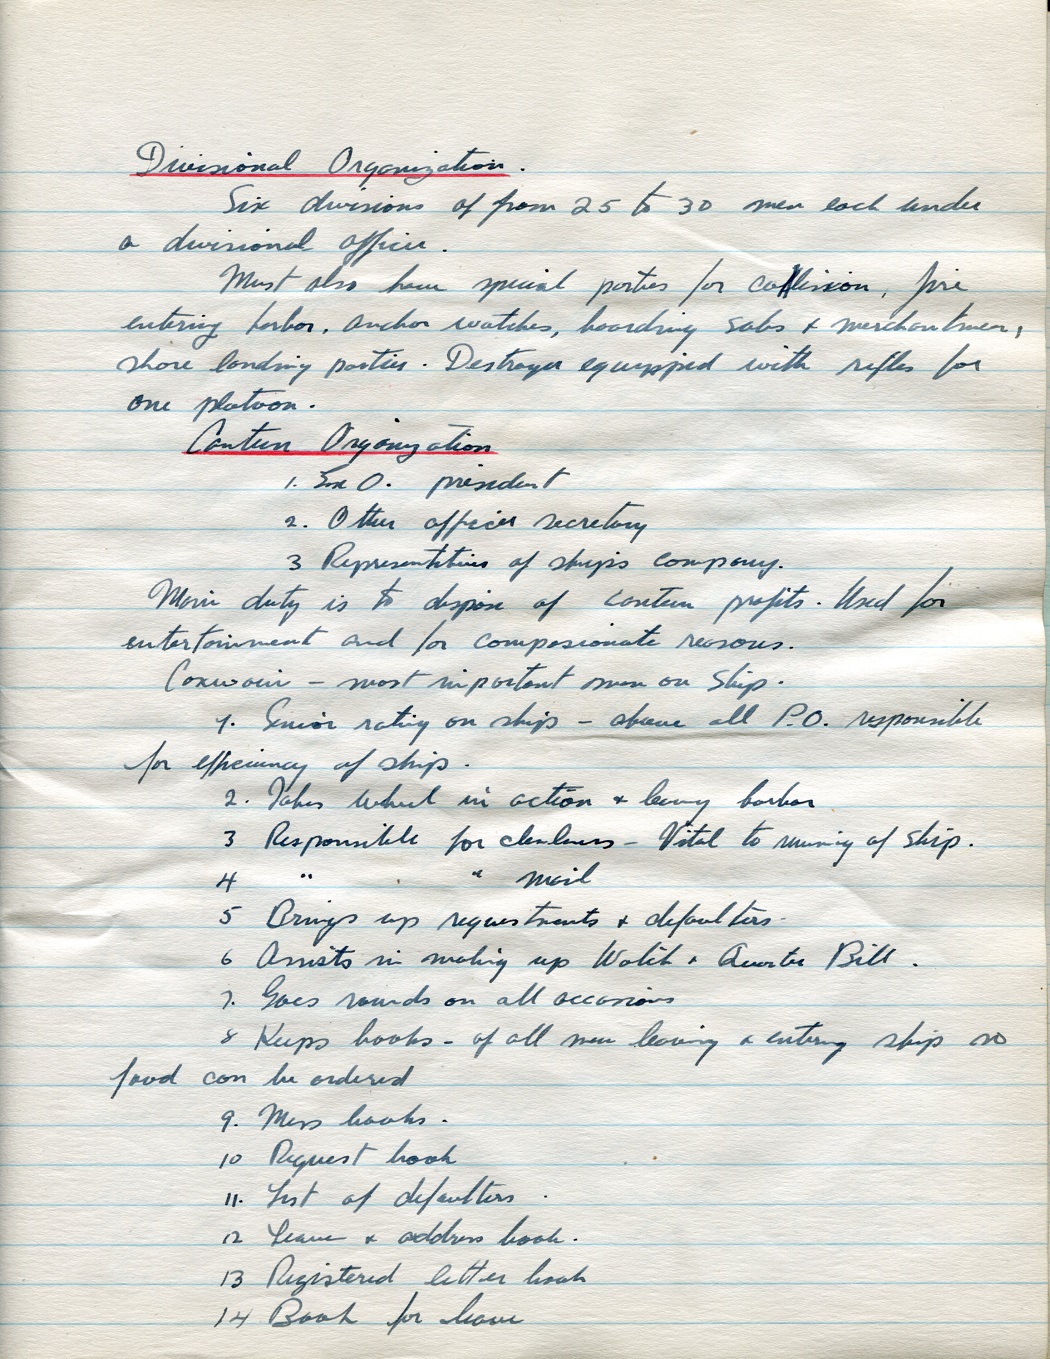 Divisional Organization.
Six divisions of from 25 to 30 men each under
a divisional officer.
Must also have special parties for collision, fire
entering harbor, anchor watches, boarding subs & merchantmen,
shore landing parties. Destroyer equipped with rifles for
one platoon.
Canteen Organization
1. Ex O. president
2. Other officer secretary
3 Representatives of ships company.
Main duty is to dispose of canteen profits. Used for
entertainment and for compasionate reasons.
Coxwain – most important man on ship.
1. Senior rating on ship – above all P.O. responsible
for efficiency of ship.
2. Takes wheel in action & leaving harbor
3 Responsible for cleanliness – Vital to running of ship.
4 " " mail
5 Brings up requestments & defaulters
6 Assists in making up Watch & Quarter Bill.
7. Goes rounds on all occasions
8 Keeps books – of all men leaving & entering ship so
food can be ordered
9. Mess books.
10 Request book
11. List of defaulters.
12 Leave & address book.
13 Registered letter book
14 Book for leave